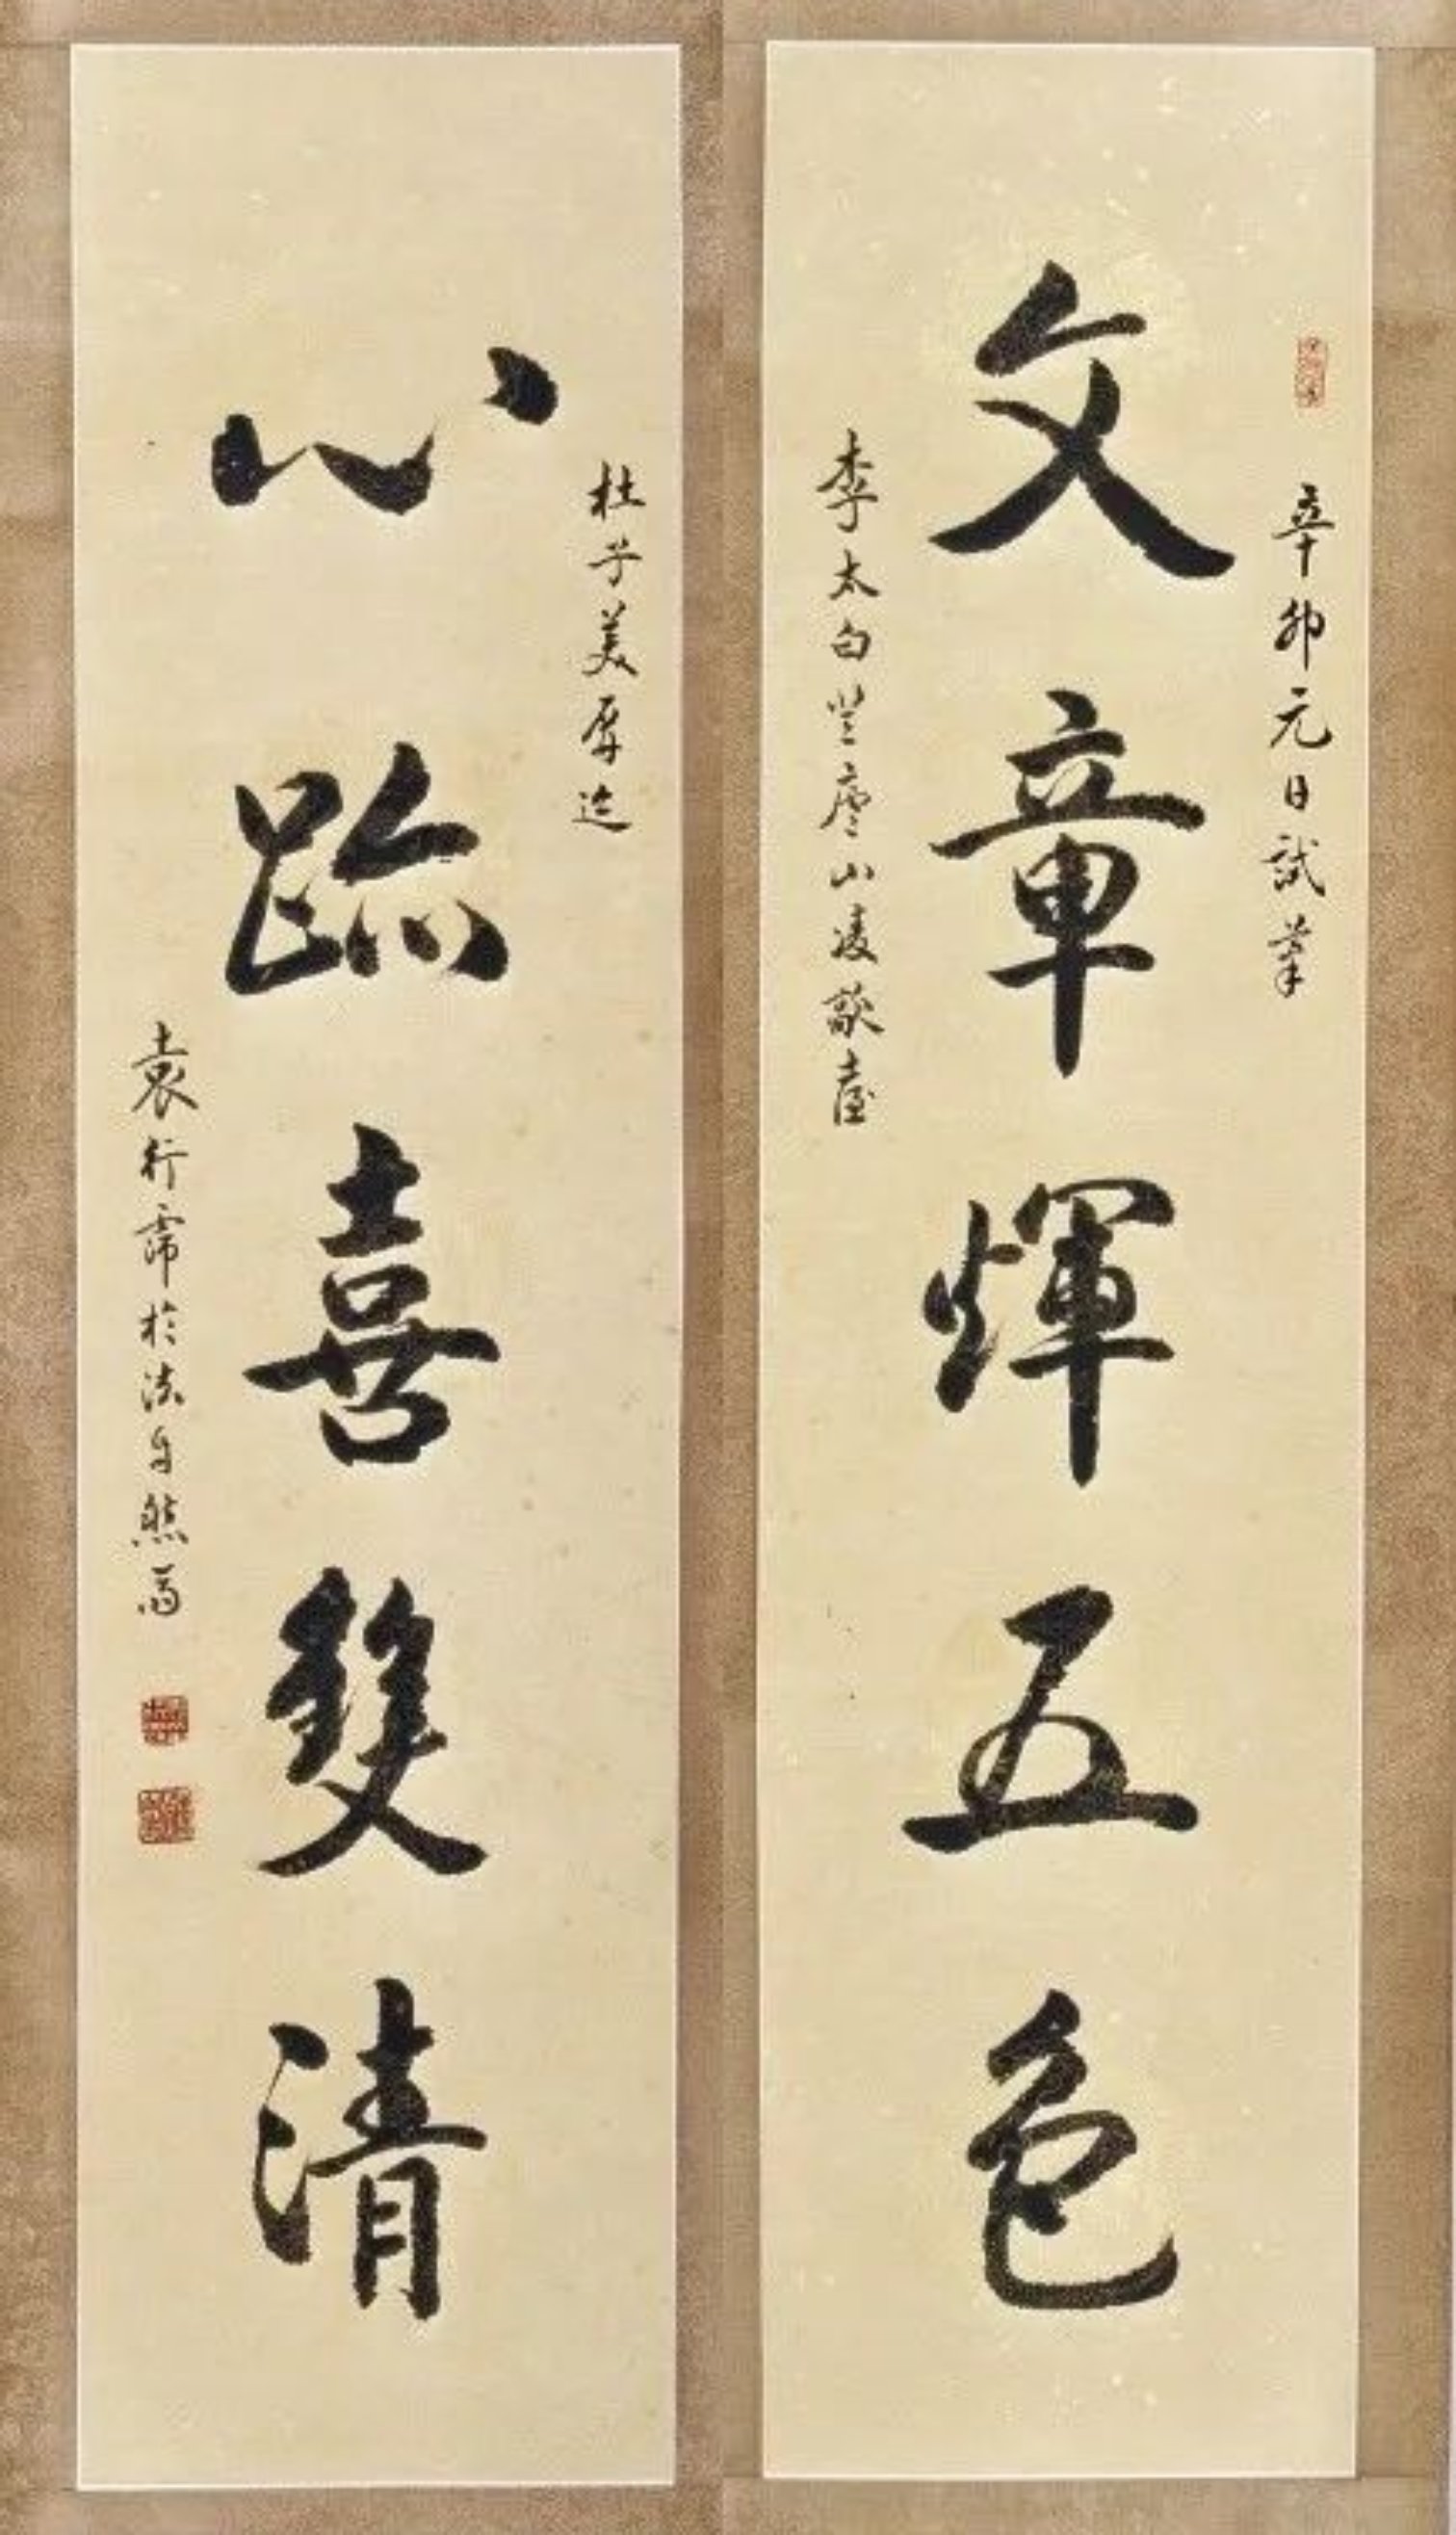 辛卯元日試筆
文章煇五色
李太白登黃山凌歊臺
杜子美屏迹
心跡喜雙清
袁行霈於法自然齋